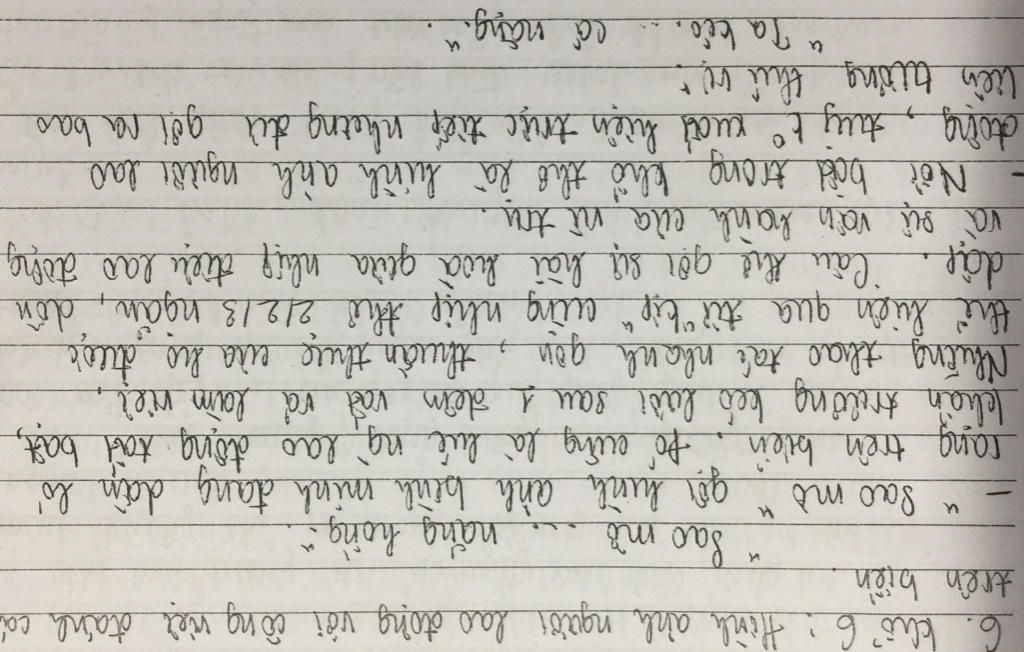 6. Khổ 6: Hình ảnh người lao động với công việc đánh cá
trên biển.
"Sao mờ ... nắng hồng".
- "Sao mờ" gợi hình ảnh bình minh đang dần ló
rạng trên biển. Đó cũng là lúc ng lao động tất bật,
khẩn trương kéo lưới sau 1 đêm vất vả làm việc,
Những thao tác nhanh gọn, thuần thục của họ được
thể hiện qua từ "kịp" cùng nhịp thơ 2/2/3 ngắn, dồn
dập. Câu thơ gợi sự hài hòa giữa nhịp điệu lao động
và sự vận hành của vũ trụ
- Nổi bật trong khổ thơ là hình ảnh người lao
động, tuy ko xuất hiện trực tiếp nhưng đủ gợi ra bao
liên tưởng thú vị:
"Ta kéo... cá nặng".